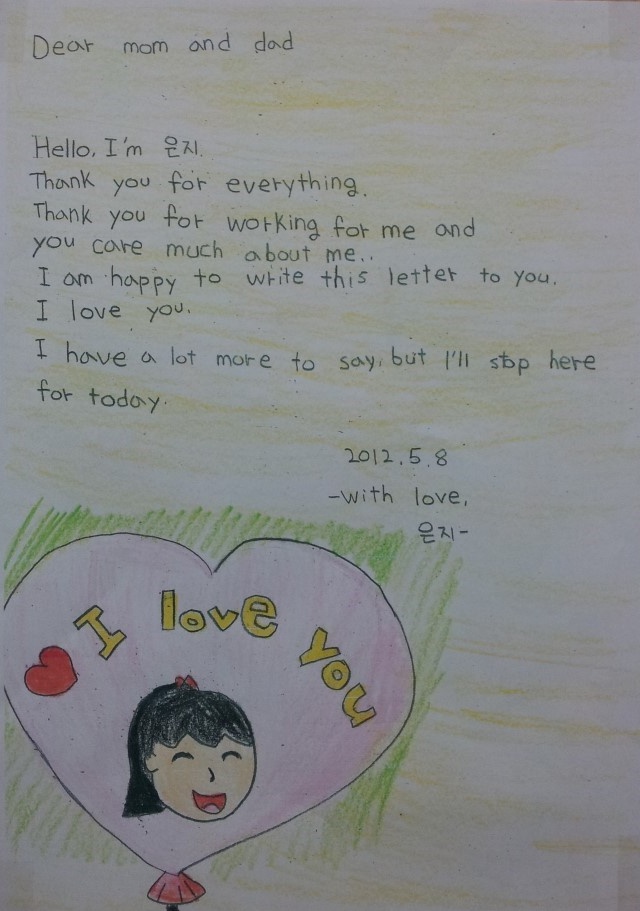 Dear mom and dad
Hello, I'm 은지.
Thank you for everything.
Thank you for working for me and
you care much about me..
I am happy to write this letter to you.
I love you.
I have a lot more to say, but I'll stop here
for today.
2012.5.8
-with love,
은지-
I love you